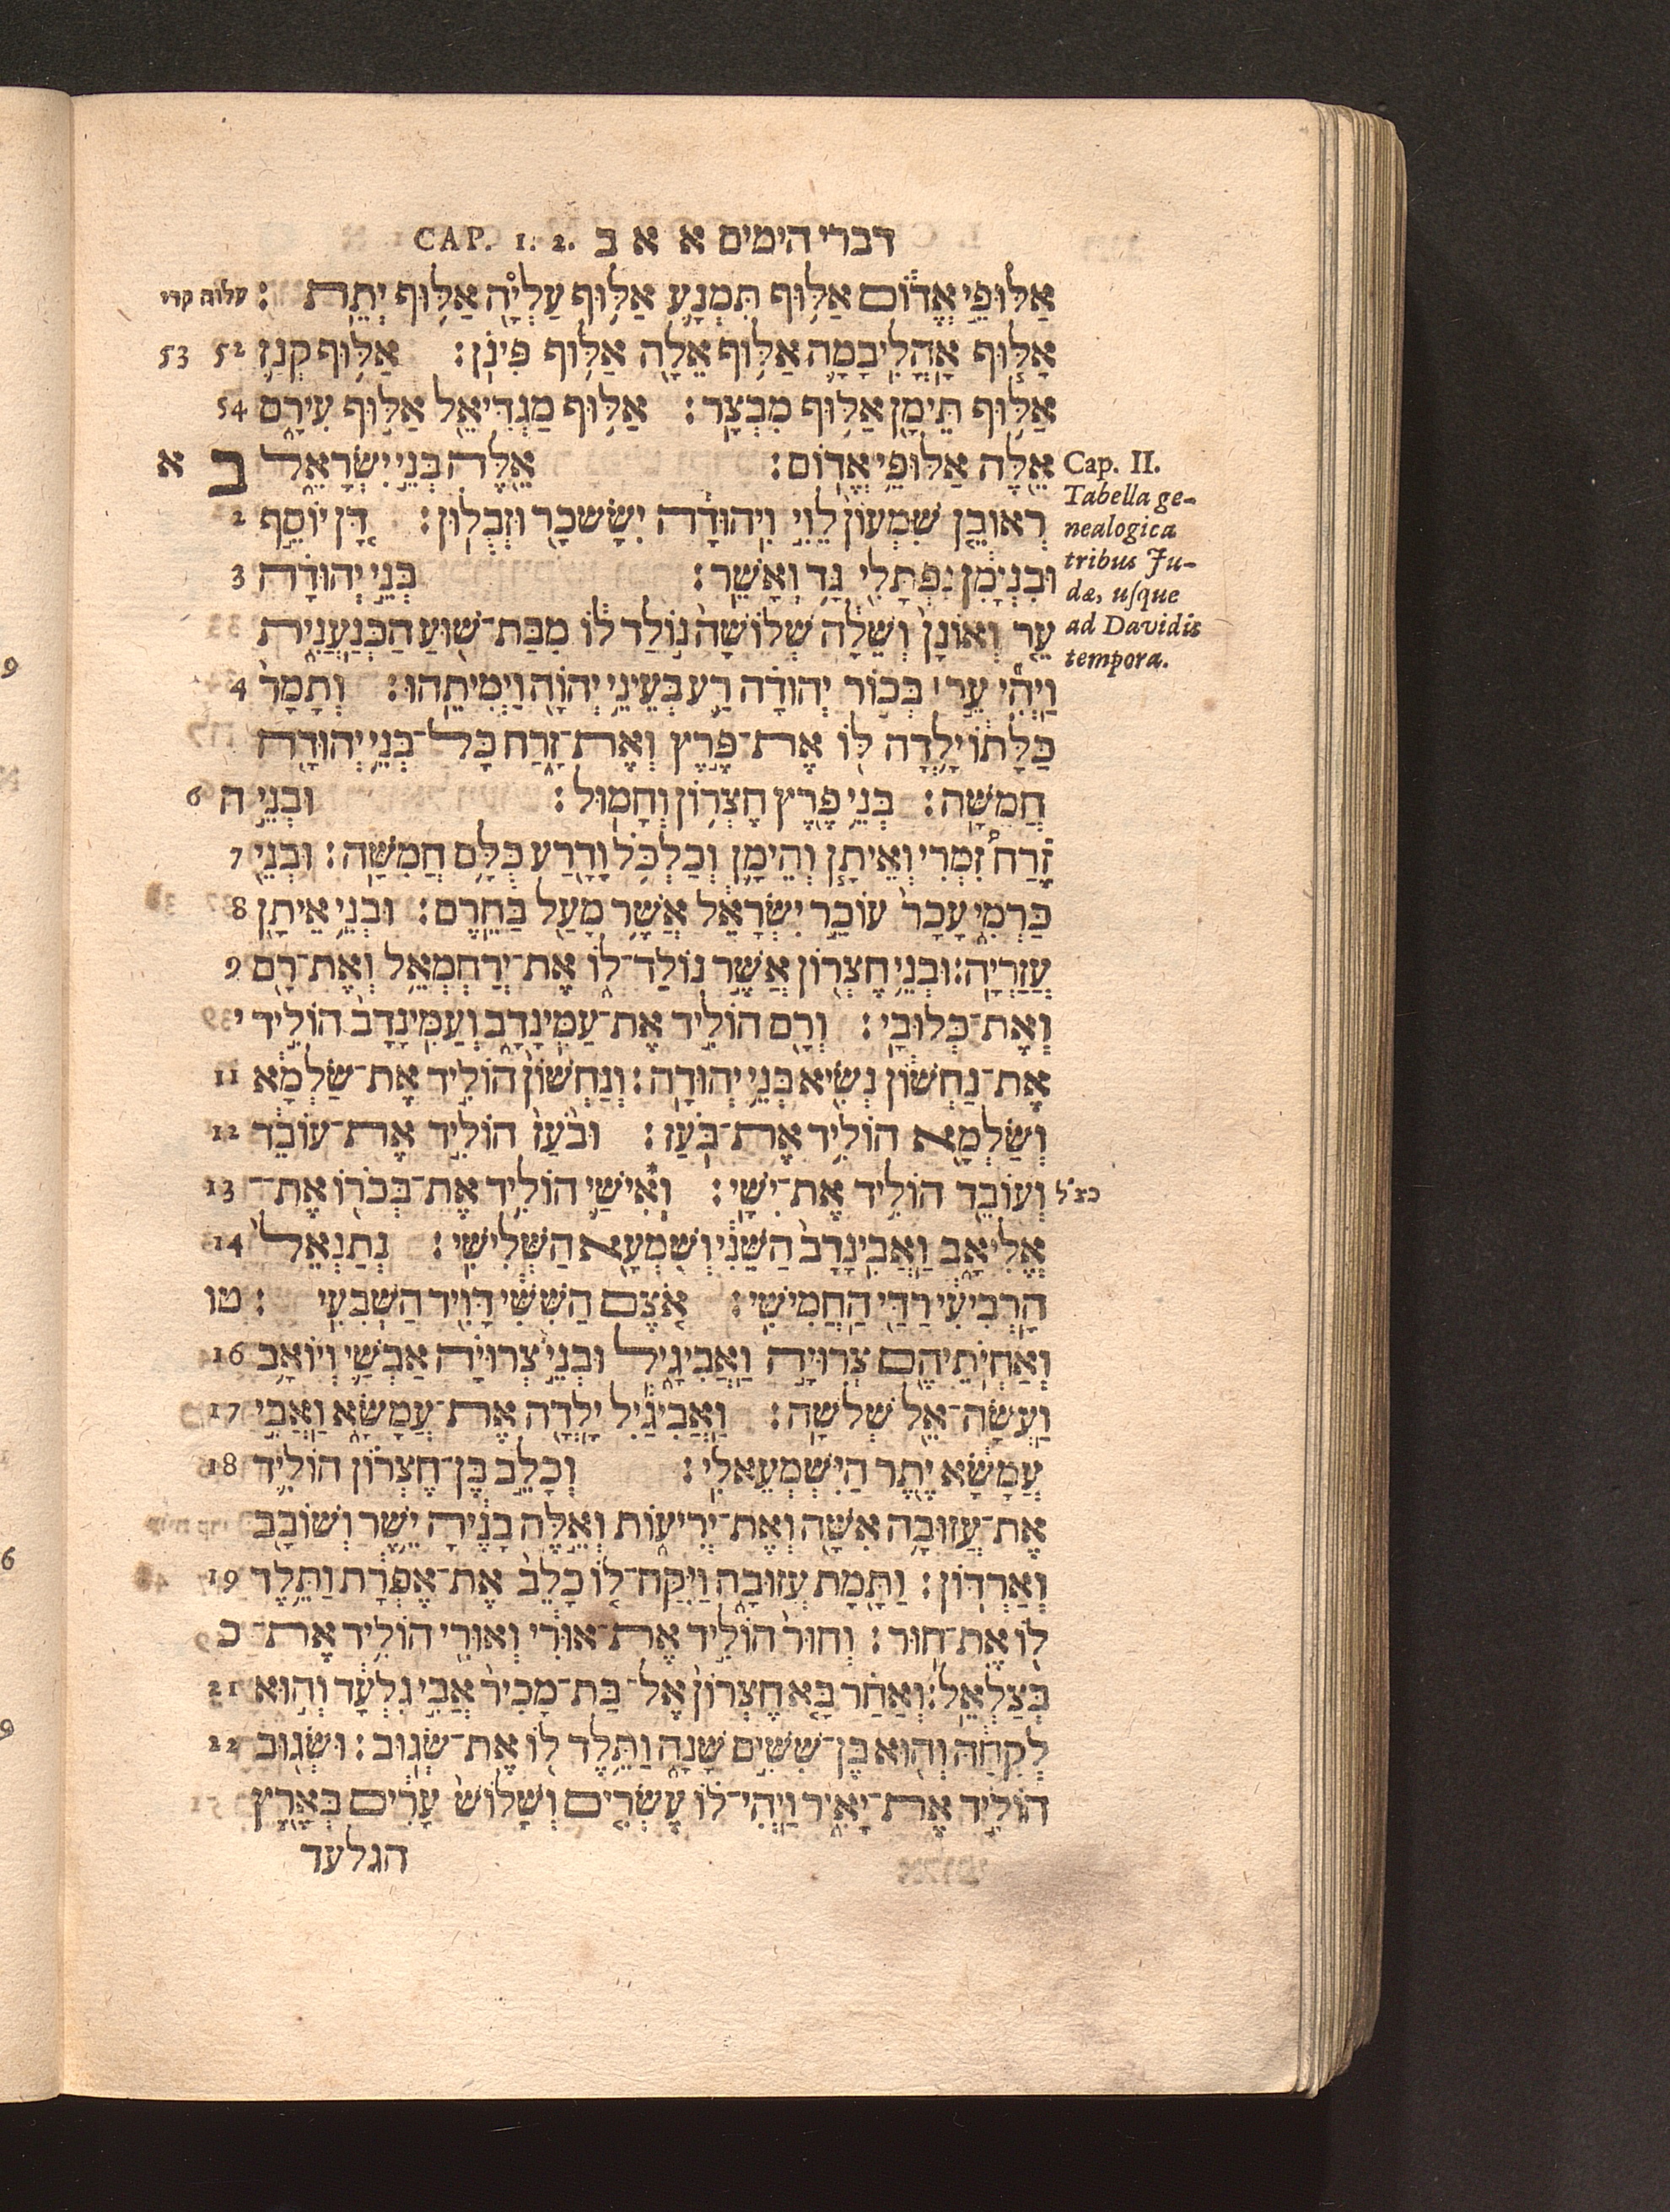 דברי הימים א א ב CAP. 1. 2.
אַלּוּפֵ֣י אֱד֑וֹם אַלּ֥וּף תִּמְנָ֛ע אַלּ֥וּף עַֽלְיָ֖ה אַלּ֥וּף יְתֵֽת׃
אַלּ֧וּף אָהֳלִֽיבָמָ֛ה אַלּ֥וּף אֵלָ֖ה אַלּ֥וּף פִּינֹֽן׃ אַלּ֥וּף קְנַ֛ז 52 53
אַלּ֥וּף תֵּימָ֖ן אַלּ֥וּף מִבְצָֽר׃ אַלּ֥וּף מַגְדִּיאֵ֖ל אַלּ֣וּף עִירָ֑ם 54
אֵ֖לֶּה אַלּוּפֵ֥י אֱדֽוֹם׃ אֵ֖לֶּה בְּנֵ֣י יִשְׂרָאֵ֑ל ב א
Cap. II.
Tabella ge-
nealogica
tribus Ju-
dæ, usque
ad Davidis
tempora.
רְאוּבֵ֤ן שִׁמְעוֹן֙ לֵוִ֣י וִֽיהוּדָ֔ה יִשָּׂשכָ֖ר וּזְבֻלֽוּן׃ דָּ֚ן יוֹסֵ֣ף 2
וּבִנְיָמִ֔ן נַפְתָּלִ֖י גָּ֥ד וְאָשֵֽׁר׃ בְּנֵ֣י יְהוּדָ֗ה 3
עֵ֤ר וְאוֹנָן֙ וְשֵׁלָ֔ה שְׁלוֹשָׁה֙ נ֣וֹלַד ל֔וֹ מִבַּת־שׁ֖וּעַ הַֽכְּנַעֲנִ֑ית
וַיְהִ֞י עֵ֣ר ׀ בְּכ֣וֹר יְהוּדָ֗ה רַ֛ע בְּעֵינֵ֥י יְהוָ֖ה וַיְמִיתֵֽהוּ׃ וְתָמָר֙ 4
כַּלָּת֔וֹ יָ֥לְדָה לּ֖וֹ אֶת־פֶּ֣רֶץ וְאֶת־זָ֑רַח כָּל־בְּנֵ֥י יְהוּדָ֖ה
חֲמִשָּֽׁה׃ בְּנֵי־פֶ֖רֶץ חֶצְר֥וֹן וְחָמֽוּל׃ וּבְנֵ֣י ה 6
זֶ֗רַח זִ֠מְרִי וְאֵיתָ֧ן וְהֵימָ֛ן וְכַלְכֹּ֥ל וָדָ֖רַע כֻּלָּ֥ם חֲמִשָּֽׁה׃ וּבְנֵ֖י 7
כַּרְמִ֑י עָכָר֙ עוֹכֵ֣ר יִשְׂרָאֵ֔ל אֲשֶׁ֥ר מָעַ֖ל בַּחֵֽרֶם׃ וּבְנֵ֥י אֵיתָ֖ן 8
עֲזַרְיָֽה׃ וּבְנֵ֥י חֶצְר֖וֹן אֲשֶׁ֣ר נוֹלַד־ל֑וֹ אֶת־יְרַחְמְאֵ֥ל וְאֶת־רָ֖ם 9
וְאֶת־כְּלוּבָֽי׃ וְרָ֖ם הוֹלִ֣יד אֶת־עַמִּינָדָ֑ב וְעַמִּינָדָב֙ הוֹלִ֣יד י
אֶת־נַחְשׁ֔וֹן נְשִׂ֖יא בְּנֵ֥י יְהוּדָֽה׃ וְנַחְשׁוֹן֙ הוֹלִ֣יד אֶת־שַׂלְמָ֔א 11
וְשַׂלְמָ֖א הוֹלִ֥יד אֶת־בֹּֽעַז׃ וּבֹ֙עַז֙ הוֹלִ֣יד אֶת־עוֹבֵ֔ד 12
וְעוֹבֵ֖ד הוֹלִ֥יד אֶת־יִשָֽׁי׃ וְאִישַׁ֛י הוֹלִ֥יד אֶת־בְּכֹר֖וֹ אֶת־ 13
אֱלִיאָ֑ב וַאֲבִֽינָדָב֙ הַשֵּׁנִ֔י וְשִׁמְעָ֖א הַשְּׁלִשִֽׁי׃ נְתַנְאֵל֙ 14
הָֽרְבִיעִ֔י רַדַּ֖י הַחֲמִישִֽׁי׃ אֹ֚צֶם הַשִּׁשִּׁ֔י דָּוִ֖יד הַשְּׁבִעִֽי׃ טו
וְאַחְיֹתֵיהֶ֖ם צְרוּיָ֣ה וַאֲבִיגָ֑יִל וּבְנֵ֣י צְרוּיָ֗ה אַבְשַׁ֛י וְיוֹאָ֥ב 16
וַעֲשָׂה־אֵ֖ל שְׁלֹשָֽׁה׃ וַאֲבִיגַ֕יִל יָלְדָ֖ה אֶת־עֲמָשָׂ֑א וַאֲבִ֣י 17
עֲמָשָׂ֔א יֶ֖תֶר הַיִּשְׁמְעֵאלִֽי׃ וְכָלֵ֣ב בֶּן־חֶצְר֗וֹן הוֹלִ֛יד 18
אֶת־עֲזוּבָ֥ה אִשָּׁ֖ה וְאֶת־יְרִיע֑וֹת וְאֵ֣לֶּה בָנֶ֔יהָ יֵ֥שֶׁר וְשׁוֹבָ֖ב
וְאַרְדּֽוֹן׃ וַתָּ֖מָת עֲזוּבָ֑ה וַיִּֽקַּֽח־ל֤וֹ כָלֵב֙ אֶת־אֶפְרָ֔ת וַתֵּ֥לֶד 19
ל֖וֹ אֶת־חֽוּר׃ וְחוּר֙ הוֹלִ֣יד אֶת־אוּרִ֔י וְאוּרִ֖י הוֹלִ֥יד אֶת־ כ
בְּצַלְאֵֽל׃ וְאַחַ֗ר בָּ֤א חֶצְרוֹן֙ אֶל־בַּת־מָכִיר֙ אֲבִ֣י גִלְעָ֔ד וְה֣וּא 21
לְקָחָ֔הּ וְה֖וּא בֶּן־שִׁשִּׁ֣ים שָׁנָ֑ה וַתֵּ֥לֶד ל֖וֹ אֶת־שְׂגֽוּב׃ וּשְׂג֖וּב 22
הוֹלִ֣יד אֶת־יָאִ֑יר וַֽיְהִי־ל֗וֹ עֶשְׂרִ֤ים וְשָׁלוֹשׁ֙ עָרִ֔ים בְּאֶ֖רֶץ
הגלעד